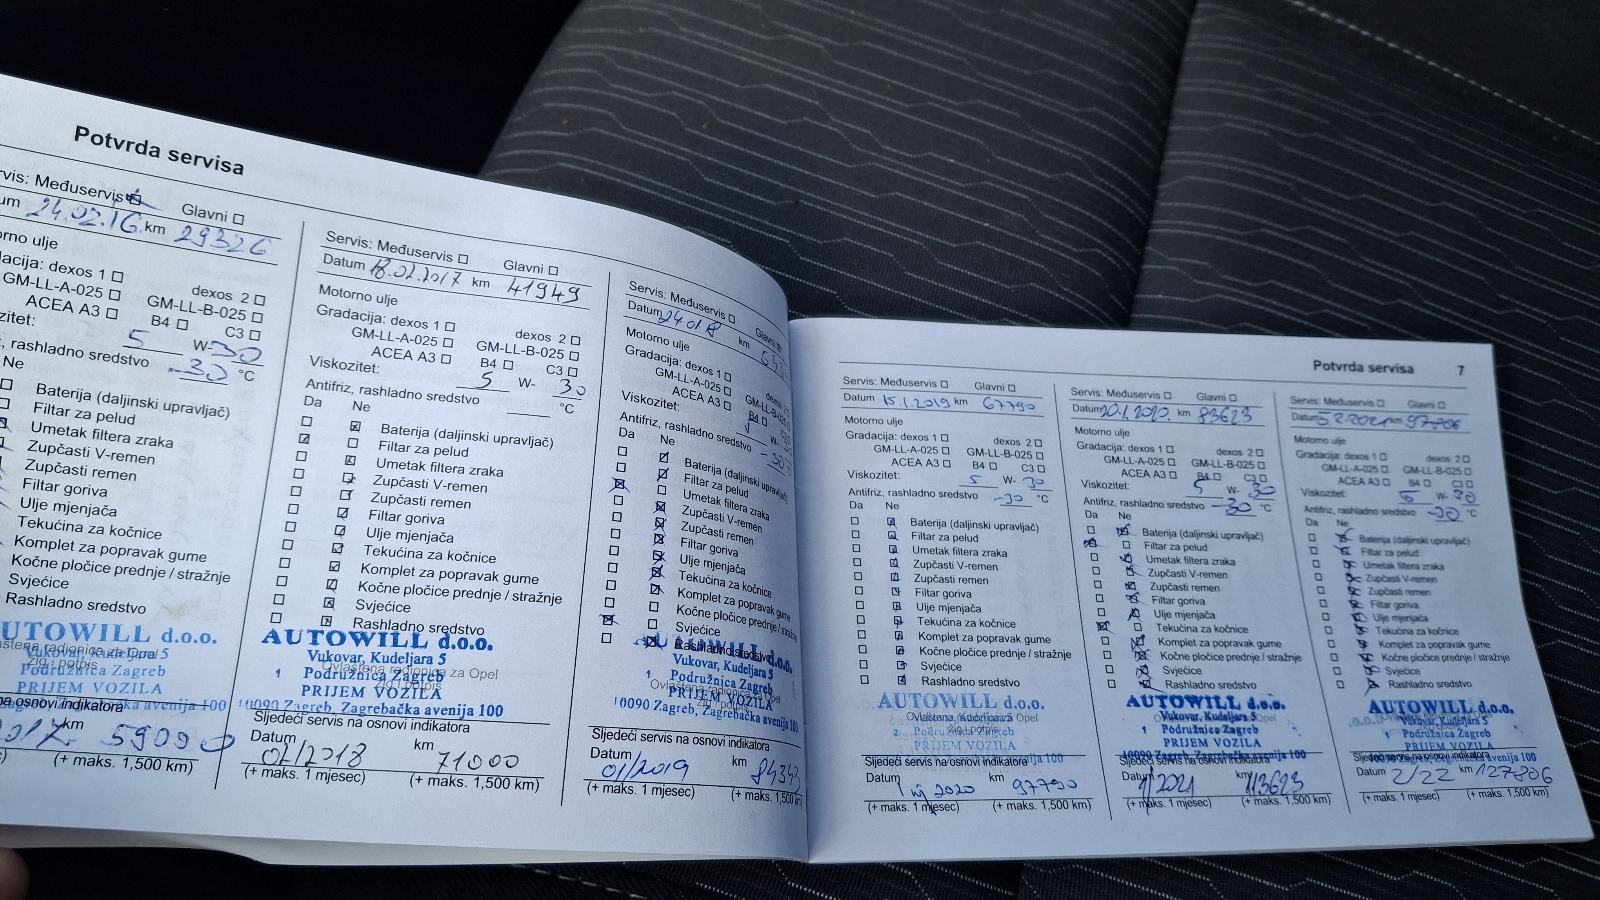 Potvrda servisa
Servis: Međuservis Glavni
24.02.16. km 29326
Motorno ulje
dexos 1 dexos 2
GM-LL-A-025 GM-LL-B-025
ACEA A3 B4 C3
5 W-30
rashladno sredstvo -30 °C
Ne
Baterija (daljinski upravljač)
Filtar za pelud
Umetak filtra zraka
Zupčasti V-remen
Zupčasti remen
Filtar goriva
Ulje mjenjača
Tekućina za kočnice
Komplet za popravak gume
Kočne pločice prednje / stražnje
Svjećice
Rashladno sredstvo
AUTOWILL d.o.o.
Vukovar, Kudeljara 5
Podružnica Zagreb
PRIJEM VOZILA
na osnovi indikatora
km
(+ maks. 1,500 km)
Servis: Međuservis Glavni
Datum 18.02.2017 km 41949
Motorno ulje
Gradacija: dexos 1 dexos 2
GM-LL-A-025 GM-LL-B-025
ACEA A3 B4 C3
Viskozitet: 5 W- 30
Antifriz, rashladno sredstvo °C
Da Ne
Baterija (daljinski upravljač)
Filtar za pelud
Umetak filtera zraka
Zupčasti V-remen
Zupčasti remen
Filtar goriva
Ulje mjenjača
Tekućina za kočnice
Komplet za popravak gume
Kočne pločice prednje / stražnje
Svjećice
Rashladno sredstvo
AUTOWILL d.o.o.
Vukovar, Kudeljara 5
Ovlaštena radionica za Opel
1 Podružnica Zagreb
Žig i potpis
PRIJEM VOZILA
10090 Zagreb, Zagrebačka avenija 100
Sljedeći servis na osnovi indikatora
Datum 02/2018 km 71000
(+ maks. 1 mjesec) (+ maks. 1,500 km)
Servis: Međuservis Glavni
Datum km
Motorno ulje
Gradacija: dexos 1
GM-LL-A-025
ACEA A3 B4
Viskozitet:
Antifriz, rashladno sredstvo
Da Ne
Baterija (daljinski upravljač)
Filtar za pelud
Umetak filtera zraka
Zupčasti V-remen
Zupčasti remen
Filtar goriva
Ulje mjenjača
Tekućina za kočnice
Komplet za popravak gume
Kočne pločice prednje /
Svjećice
Rashladno sredstvo
Vukovar, Kudeljara 5
1 Podružnica Zagreb
PRIJEM VOZILA
10090 Zagreb, Zagrebačka avenija 100
Sljedeći servis na osnovi indikatora
Datum 01/2019 km 84343
(+ maks. 1 mjesec) (+ maks. 1,500 km)
Potvrda servisa 7
Servis: Međuservis Glavni
Datum 15.1.2019 km 67790
Motorno ulje
Gradacija: dexos 1 dexos 2
GM-LL-A-025 GM-LL-B-025
ACEA A3 B4 C3
Viskozitet: 5 W- 30
Antifriz, rashladno sredstvo -30 °C
Da Ne
Baterija (daljinski upravljač)
Filtar za pelud
Umetak filtera zraka
Zupčasti V-remen
Zupčasti remen
Filtar goriva
Ulje mjenjača
Tekućina za kočnice
Komplet za popravak gume
Kočne pločice prednje / stražnje
Svjećice
Rashladno sredstvo
AUTOWILL d.o.o.
PRIJEM VOZILA
Sljedeći servis na osnovi indikatora
Datum 2020 km 97790
(+ maks. 1 mjesec) (+ maks. 1,500 km)
Servis: Međuservis Glavni
Datum 20.1.2020. km 83623
Motorno ulje
Gradacija: dexos 1 dexos 2
GM-LL-A-025 GM-LL-B-025
ACEA A3 B4 C3
Viskozitet: 5 W- 30
Antifriz, rashladno sredstvo -30 °C
Da Ne
Baterija (daljinski upravljač)
Filtar za pelud
Umetak filtera zraka
Zupčasti V-remen
Zupčasti remen
Filtar goriva
Ulje mjenjača
Tekućina za kočnice
Komplet za popravak gume
Kočne pločice prednje / stražnje
Svjećice
Rashladno sredstvo
AUTOWILL d.o.o.
Vukovar, Kudeljara 5
1 Podružnica Zagreb
PRIJEM VOZILA
10090 Zagreb, Zagrebačka avenija 100
Sljedeći servis na osnovi indikatora
Datum 1/2021 km 113623
(+ maks. 1 mjesec) (+ maks. 1,500 km)
Servis: Međuservis Glavni
Datum 5.2.2021 km 97806
Motorno ulje
Gradacija: dexos 1 dexos 2
GM-LL-A-025 GM-LL-B-025
ACEA A3 B4 C3
Viskozitet: 5 W- 30
Antifriz, rashladno sredstvo -30 °C
Da Ne
Baterija (daljinski upravljač)
Filtar za pelud
Umetak filtera zraka
Zupčasti V-remen
Zupčasti remen
Filtar goriva
Ulje mjenjača
Tekućina za kočnice
Komplet za popravak gume
Kočne pločice prednje / stražnje
Svjećice
Rashladno sredstvo
AUTOWILL d.o.o.
Vukovar, Kudeljara 5
1 Podružnica Zagreb
PRIJEM VOZILA
Datum 2/22 km 127806
(+ maks. 1 mjesec) (+ maks. 1,500 km)